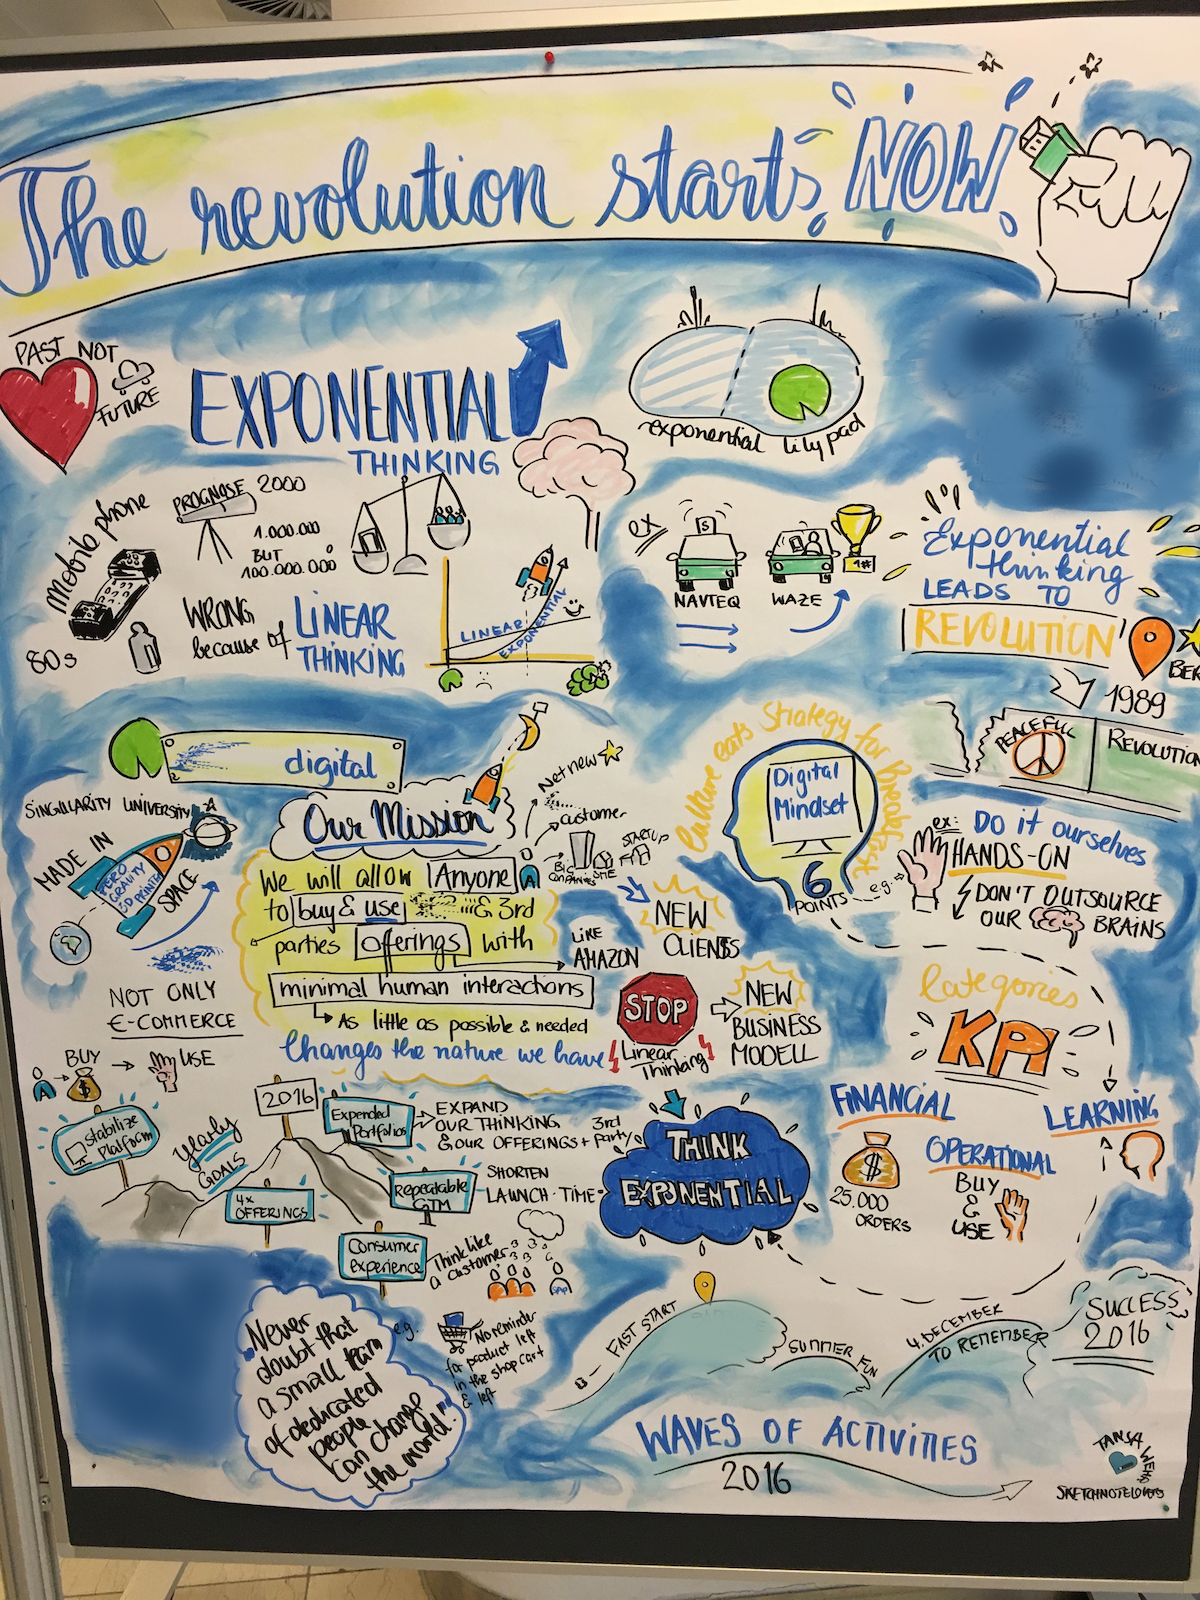 The revolution starts NOW
PAST NOT
FUTURE
EXPONENTIAL
THINKING
exponential lilypad
Mobile phone
80s
PROGNOSE 2000
1.000.000
BUT
100.000.000
WRONG
because of
LINEAR
THINKING
LINEAR
EXPONENTIAL
ex
$
NAVTEQ
WAZE
1#
Exponential
thinking
LEADS TO
REVOLUTION
BER
1989
PEACEFULL
REVOLUTION
digital
SINGULARITY UNIVERSITY
MADE IN
SPACE
ZERO
GRAVITY
3D PRINTER
NOT ONLY
E-COMMERCE
BUY
$
USE
Our Mission
We will allow Anyone
to buy & use & 3rd
parties offerings with
minimal human interactions
As little as possible & needed
Changes the nature we have
Net new
customer
BIG
COMPANIES
SME
STARTUP
NEW
CLIENTS
LIKE
AMAZON
STOP
Linear
Thinking
NEW
BUSINESS
MODELL
Culture eats Strategy for Breakfast
Digital
Mindset
6
POINTS
e.g.
ex:
Do it ourselves
HANDS-ON
DON'T OUTSOURCE
OUR BRAINS
Categories
KPI
FINANCIAL
$
25.000
ORDERS
OPERATIONAL
BUY
&
USE
LEARNING
Stabilize
Platform
Yearly
GOALS
2016
4x
OFFERINGS
Expended
Portfolios
EXPAND
OUR THINKING
& OUR OFFERINGS + 3rd
party
Repeatable
GTM
SHORTEN
LAUNCH-TIME
Consumer
experience
Think like
a customer
SAP
e.g.
No reminder
for product left
in the shop cart
& left
THINK
EXPONENTIAL
"Never
doubt that
a small team
of dedicated
people
can change
the world."
FAST START
SUMMER FUN
4. DECEMBER
TO REMEMBER
SUCCESS
2016
WAVES OF ACTIVITIES
2016
TANJA
WEHR
SKETCHNOTELOVERS